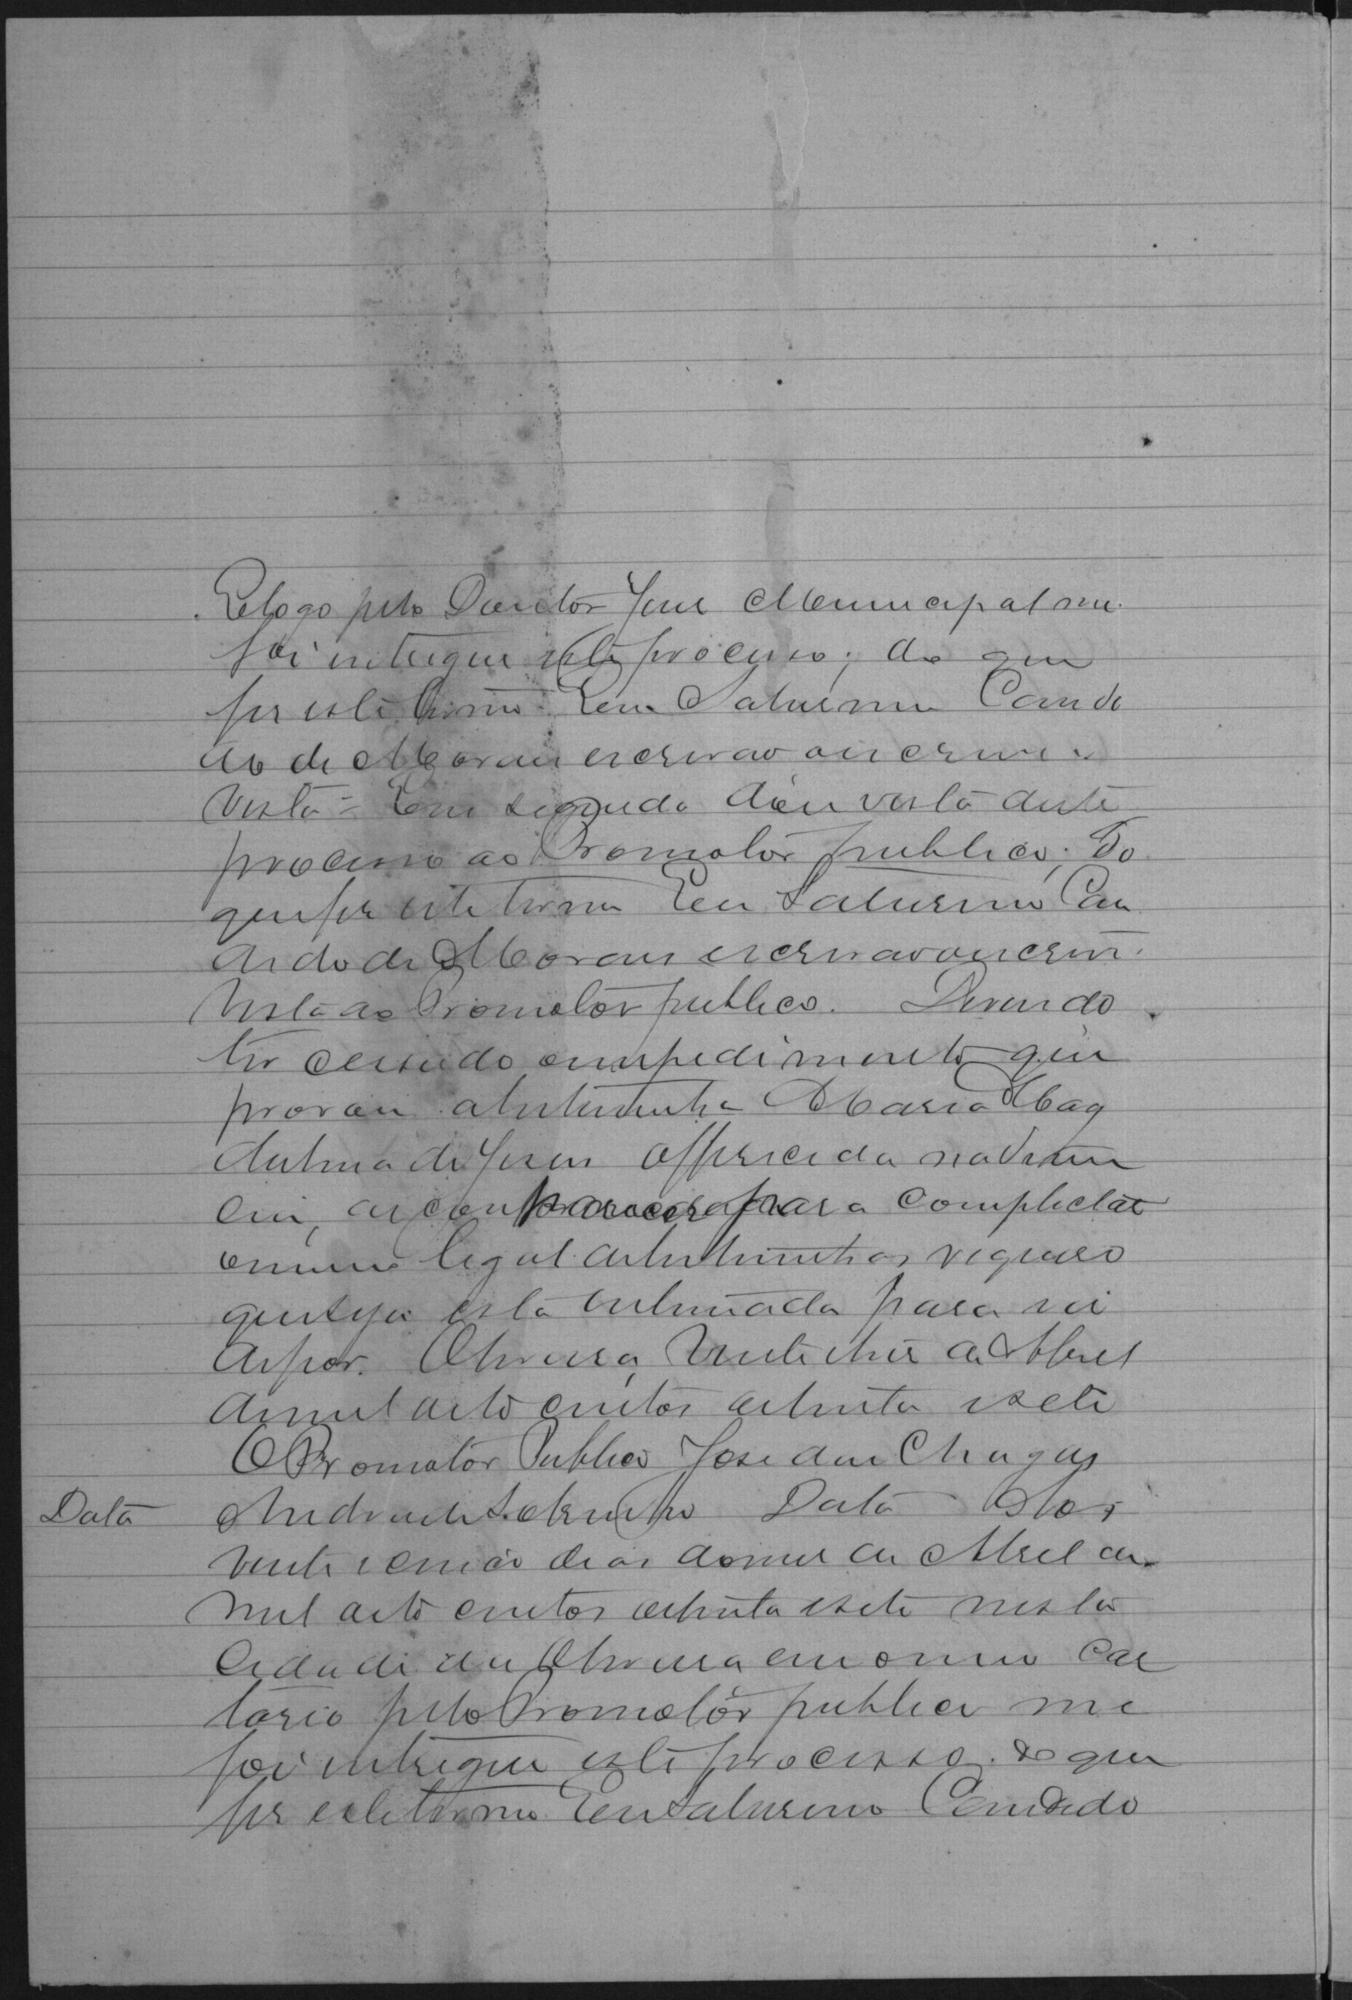 E logo pelo Doutor Juis Municipal me
foi entregue este processo; do que
fis este termo. Eeu Saturnino Candi
do de Moraes escrivão o escrevi.
Vista = E em seguida dou vista deste
processo ao Promotor publico; do
que fis este termo Eeu Saturnino Can
dido de Moraes escrivão o escrevi.
Vista ao Promotor publico. Devendo
ter cessado o impedimento que
provou a testemunha Maria Mag
dalena de Jesus offerecida na denun
cia, a comparecer para completar
o numero legal de testemunhas requeiro
que seja esta intimada para vir
depor. Oliveira, vinte e seis de Abril
de mil oito centos oitenta e sete
O Promotor Publico Jose das Chagas
Andrade Sobrinho Data Aos
Data
vinte e seis dias do mes de Abril de
mil oito centos oitenta e sete nesta
Cidade da Oliveira em o meu car
torio pelo Promotor publico me
foi entregue este processo. do que
fis este termo Eeu Saturnino Candido